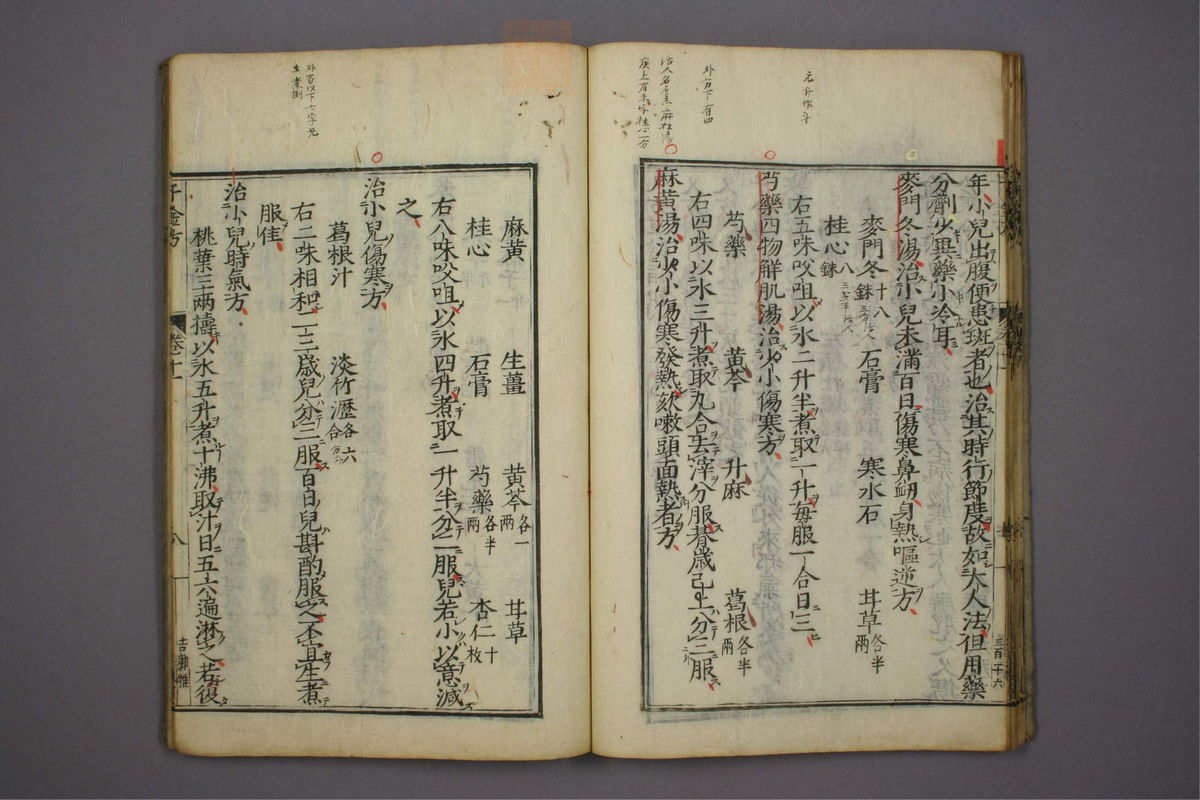 元升作斗
外分下有四
活人名石羔麻桂湯
年小兒出腹便患斑者也治其時行節度故如大人法但用藥
分劑少異藥小冷耳
麥門冬湯治小兒未滿百日傷寒鼻衂身熱嘔逆方
麥門冬十八銖 石膏 寒水石 甘草各半兩
桂心八銖
右五味㕮咀以水二升半煮取一升每服一合日三
芍藥四物解肌湯治少小傷寒方
芍藥 黃芩 升麻 葛根各半兩
右四味以水三升煮取九合去滓分服朞歲已上分三服
麻黃湯治少小傷寒發熱欬嗽頭面熱者方
外百以下七字无
生煮倒
麻黃 生薑 黃芩各一兩 甘草
桂心 石膏 芍藥各半兩 杏仁十枚
右八味㕮咀以水四升煮取一升半分二服兒若小以意減
之
治小兒傷寒方
葛根汁 淡竹瀝各六合
右二味相和二三歲兒分三服百日兒斟酌服之不宜生煮
服佳
治小兒時氣方
桃葉三兩擣以水五升煮十沸取汁日五六遍淋之若復
千金方 卷十一 八